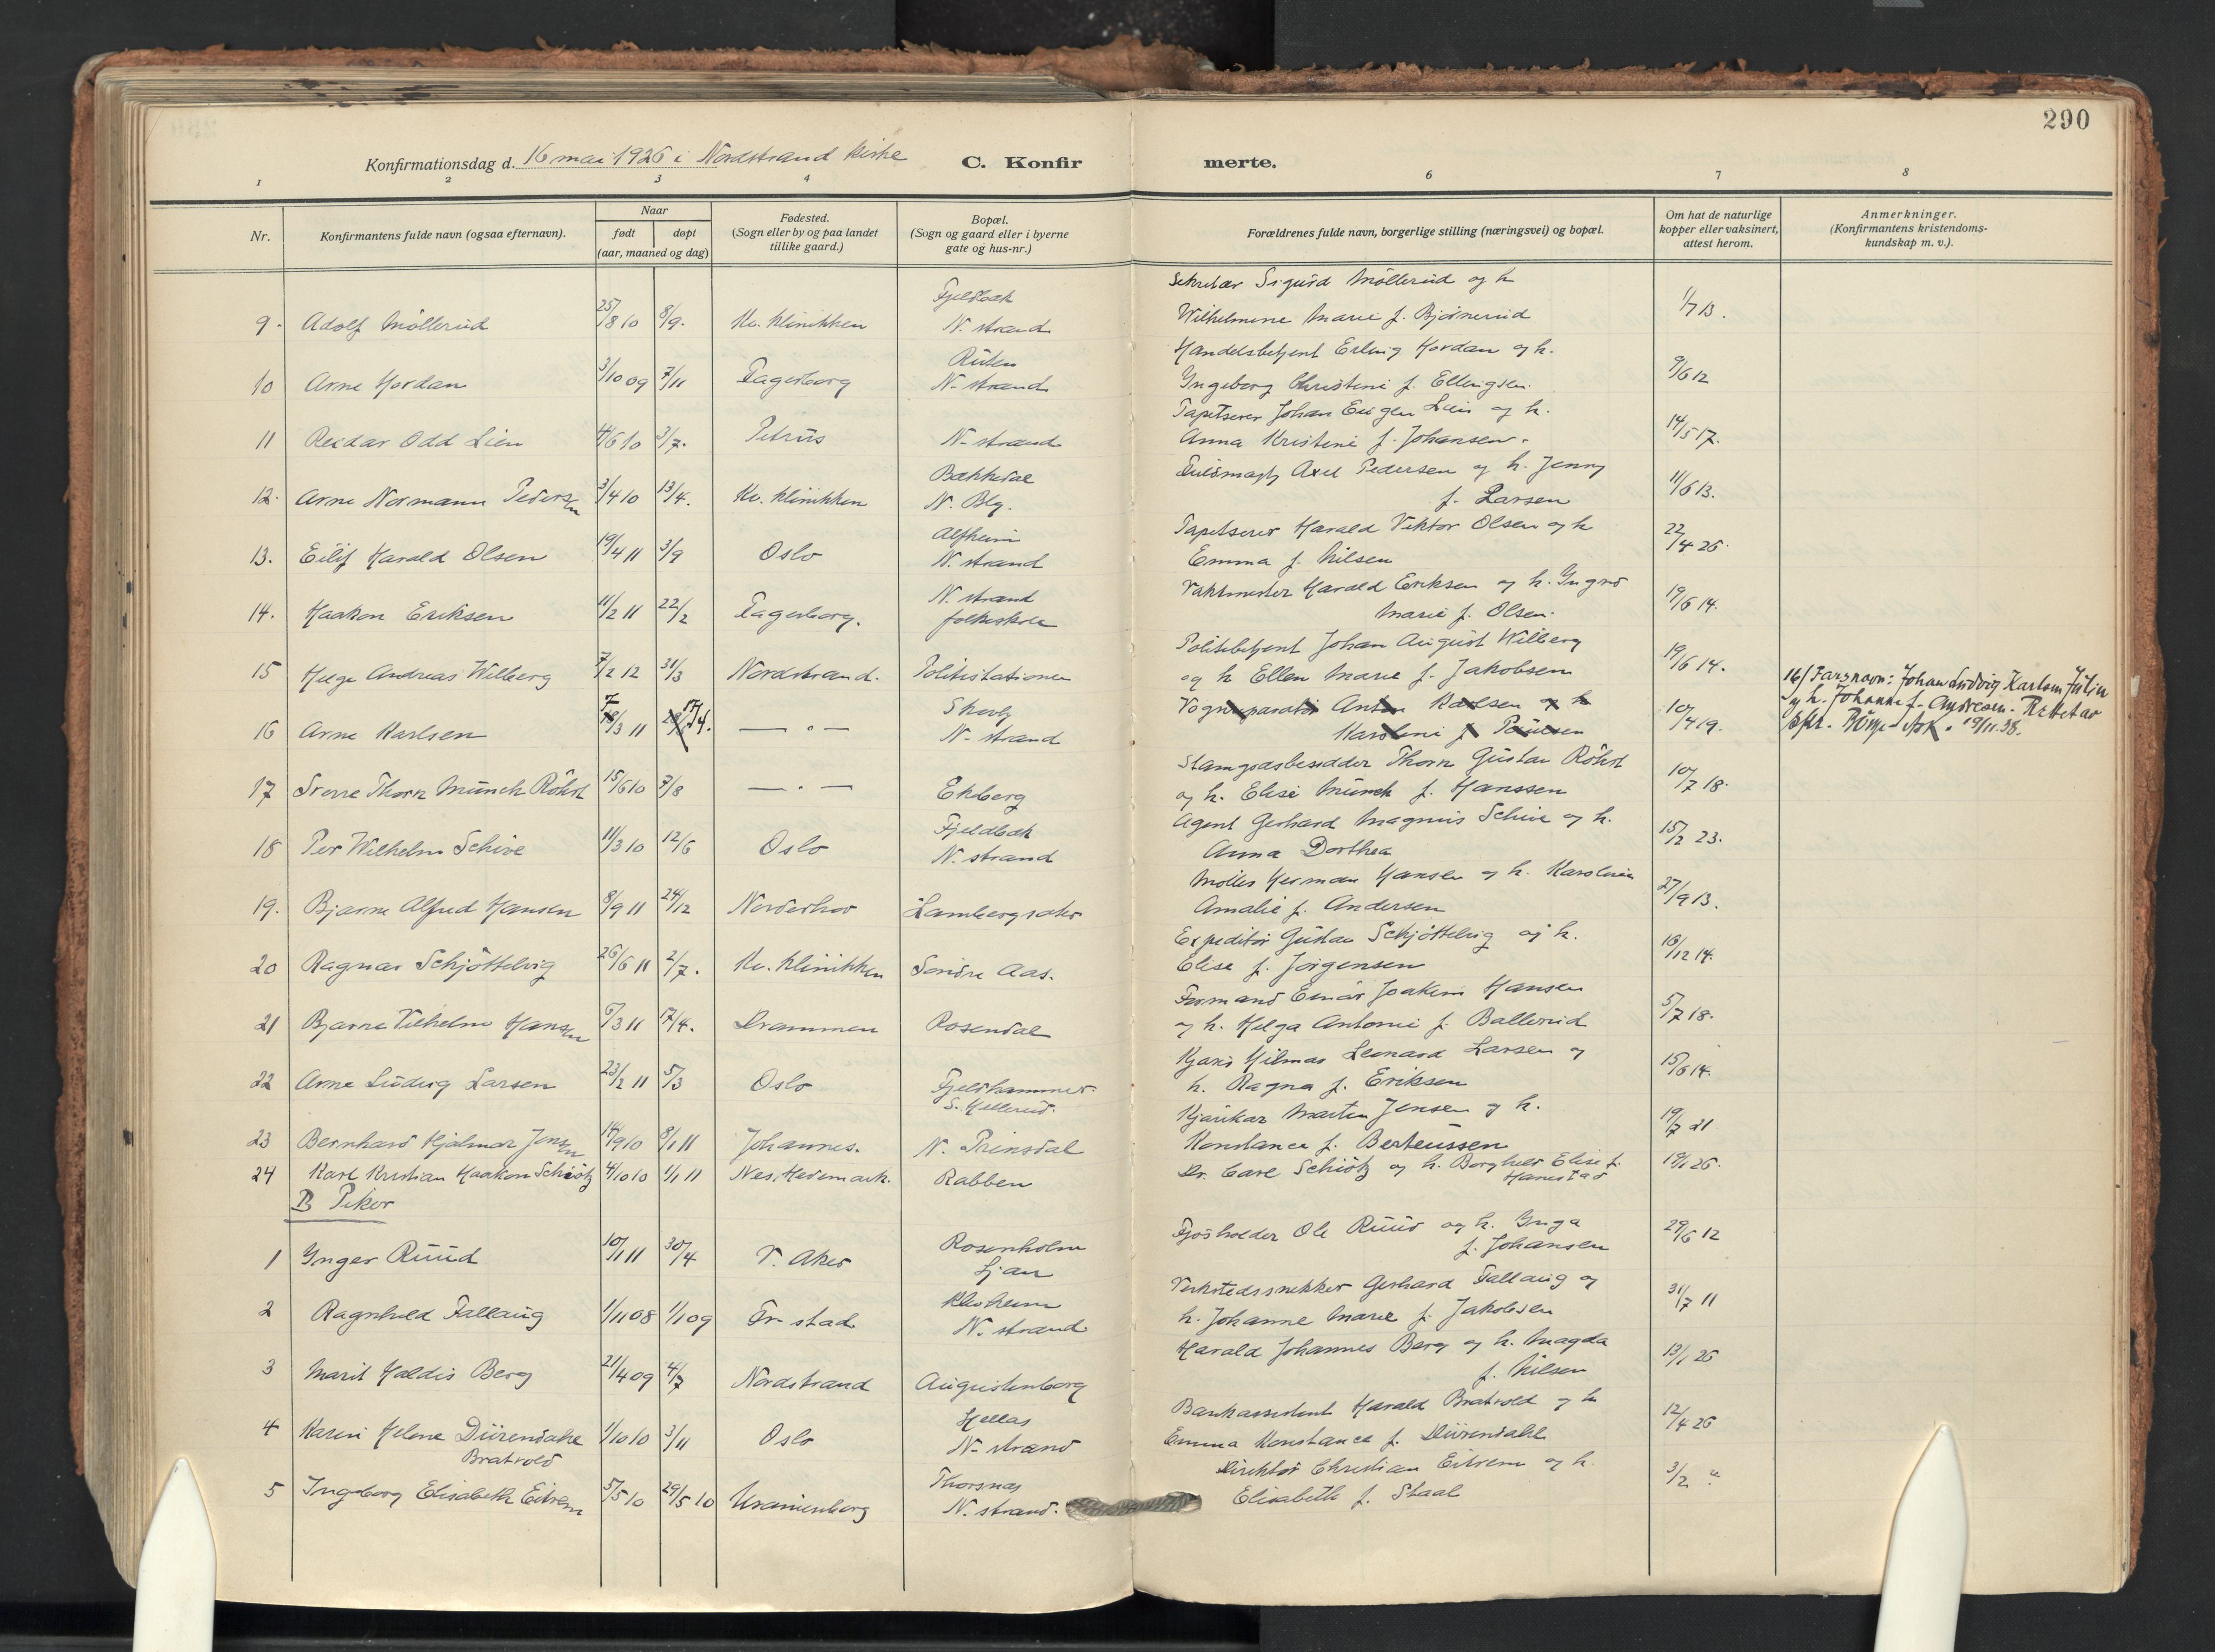 290
Konfirmationsdag d. 16 mai 1926 i Nordstrand kirke
C. Konfirmerte.
1 2 3 4 6 7 8
Nr.
Konfirmantens fulde navn (ogsaa efternavn).
Naar
født døpt
(aar, maaned og dag)
Fødested.
(Sogn eller by og paa landet
tillike gaard.)
Bopæl.
(Sogn og gaard eller i byerne
gate og hus-nr.)
Forældrenes fulde navn, borgerlige stilling (næringsvei) og bopæl.
Om hat de naturlige
kopper eller vaksinert,
attest herom.
Anmerkninger.
(Konfirmantens kristendoms-
kundskap m. v.).
9. Adolf Möllerud 25/8 10 8/9. Kv. klinikken Fjeldbak
N. strand
Sekretær Sigurd Möllerud og h
Wilhelmine Marie f. Bjørnerud 1/7 13.
10 Arne Hordan 3/10 09 7/11 Fagerborg
N. strand
Handelsbetjent Erling Hordan og h.
Ingeborg Christine f. Ellingsen 9/6 12
11 Reidar Odd Lien 4/6 10 3/7. Petrus N. strand
Tapetserer Johan Eugen Lien og h.
Anna Kristine f. Johansen. 14/5 17.
12. Arne Normann Pedersen 3/4 10 13/4. Kv. klinikken Bakkedal
N. Blg.
Axel Pedersen og h. Jenny
f. Larsen 11/6 13.
13. Eilif Harald Olsen 19/4 11 3/9 Oslo Alfheim
N. strand
Tapetserer Harald Viktor Olsen og h
Emma f. Nilsen 22/4 25.
14. Haakon Eriksen 11/2 11 22/2 Fagerborg. N. strand
folkeskole
Vaktmester Harald Eriksen og h. Ingrid
Marie f. Olsen. 19/6 14.
15 Helge Andreas Wilberg 7/2 12 31/3 Nordstrand. Politistationen
Politibetjent Johan August Wilberg
og h Ellen Marie f. Jakobsen 19/6 14.
16 Arne Karlsen 7/3 11 17/4. — " — Skovly
N. strand
Vognreparatør Anton Karlsen og h
Karoline f. Poulsen 10/4 19.
16/ Farsnavn: Johan Ludvig Karlsen Julin
og h. Johanne f. Andresen. Rettet av
19/11.38.
17 Sverre Thorn Münch Röhrt 15/6 10 7/8 — " — Ekberg
Stamgodsbesidder Thorn Gustav Röhrt
og h. Elise Münch f. Hanssen 10/7 18.
18 Per Wilhelm Schive 11/3 10 12/6 Oslo Fjeldbak
N. strand
Agent Gerhard Magnus Schive og h.
Anna Dorthea 15/2 23.
19. Bjarne Alfred Hansen 8/9 11 24/12 Norderhov Lambergsæter
Møller Herman Hansen og h. Karoline
Amalie f. Andersen 27/9 13.
20 Ragnar Schjöttelvig 26/6 11 2/7. Kv. klinikken Søndre Aas.
Expeditør Gustav Schjöttelvig og h.
Elise f. Jørgensen 16/12 14.
21 Bjarne Vilhelm Hansen 6/3 11 17/4. Drammen Rosendal
Formand Einar Joakim Hansen
og h. Helga Antonie f. Ballerud 5/7 18.
22 Arne Ludvig Larsen 23/2 11 5/3 Oslo Fjeldhammer
S. Hellerud.
Hilmar Leonard Larsen og
h. Ragna f. Eriksen 15/6 14.
23 Bernhard Hjalmar Jensen 14/9 10 8/1 11 Johannes. N. Prinsdal
Martin Jensen og h.
Konstance f. Berteussen 19/7 21
24 Karl Kristian Haakon Schiötz 4/10 10 1/1 11 Nes. Hedemark. Rabben
Dr. Carl Schiötz og h. Borghild Elise f.
Hanestad 19/1 26.
B Piker
1 Inger Ruud 10/1 11 30/4 V. Aker Rosenholm
Ljan
Fjøsholder Ole Ruud og h. Inga
f. Johansen 29/6 12
2 Ragnhild Fallaug 1/11 08 1/1 09 Fr. stad
N. strand
Verkstedssnekker Gerhard Fallaug og
h. Johanne Marie f. Jakobsen 31/7 11
3 Marit Haldis Berg 21/4 09 4/7 Nordstrand Augustenborg
Harald Johannes Berg og h. Magda
f. Nilsen 13/1 26
4 Karin Helene Dürendahl
Bratvold 1/10 10 3/11 Oslo Hellas
N. strand
Bankassistent Harald Bratvold og h
Emma Konstance f. Dürendahl 12/4 26
5 Ingeborg Elisabeth Eitrem 5/5 10 29/5 10 Uranienborg Thorsnes
N. strand.
Direktør Christian Eitrem og h.
Elisabeth f. Staal 3/2 "